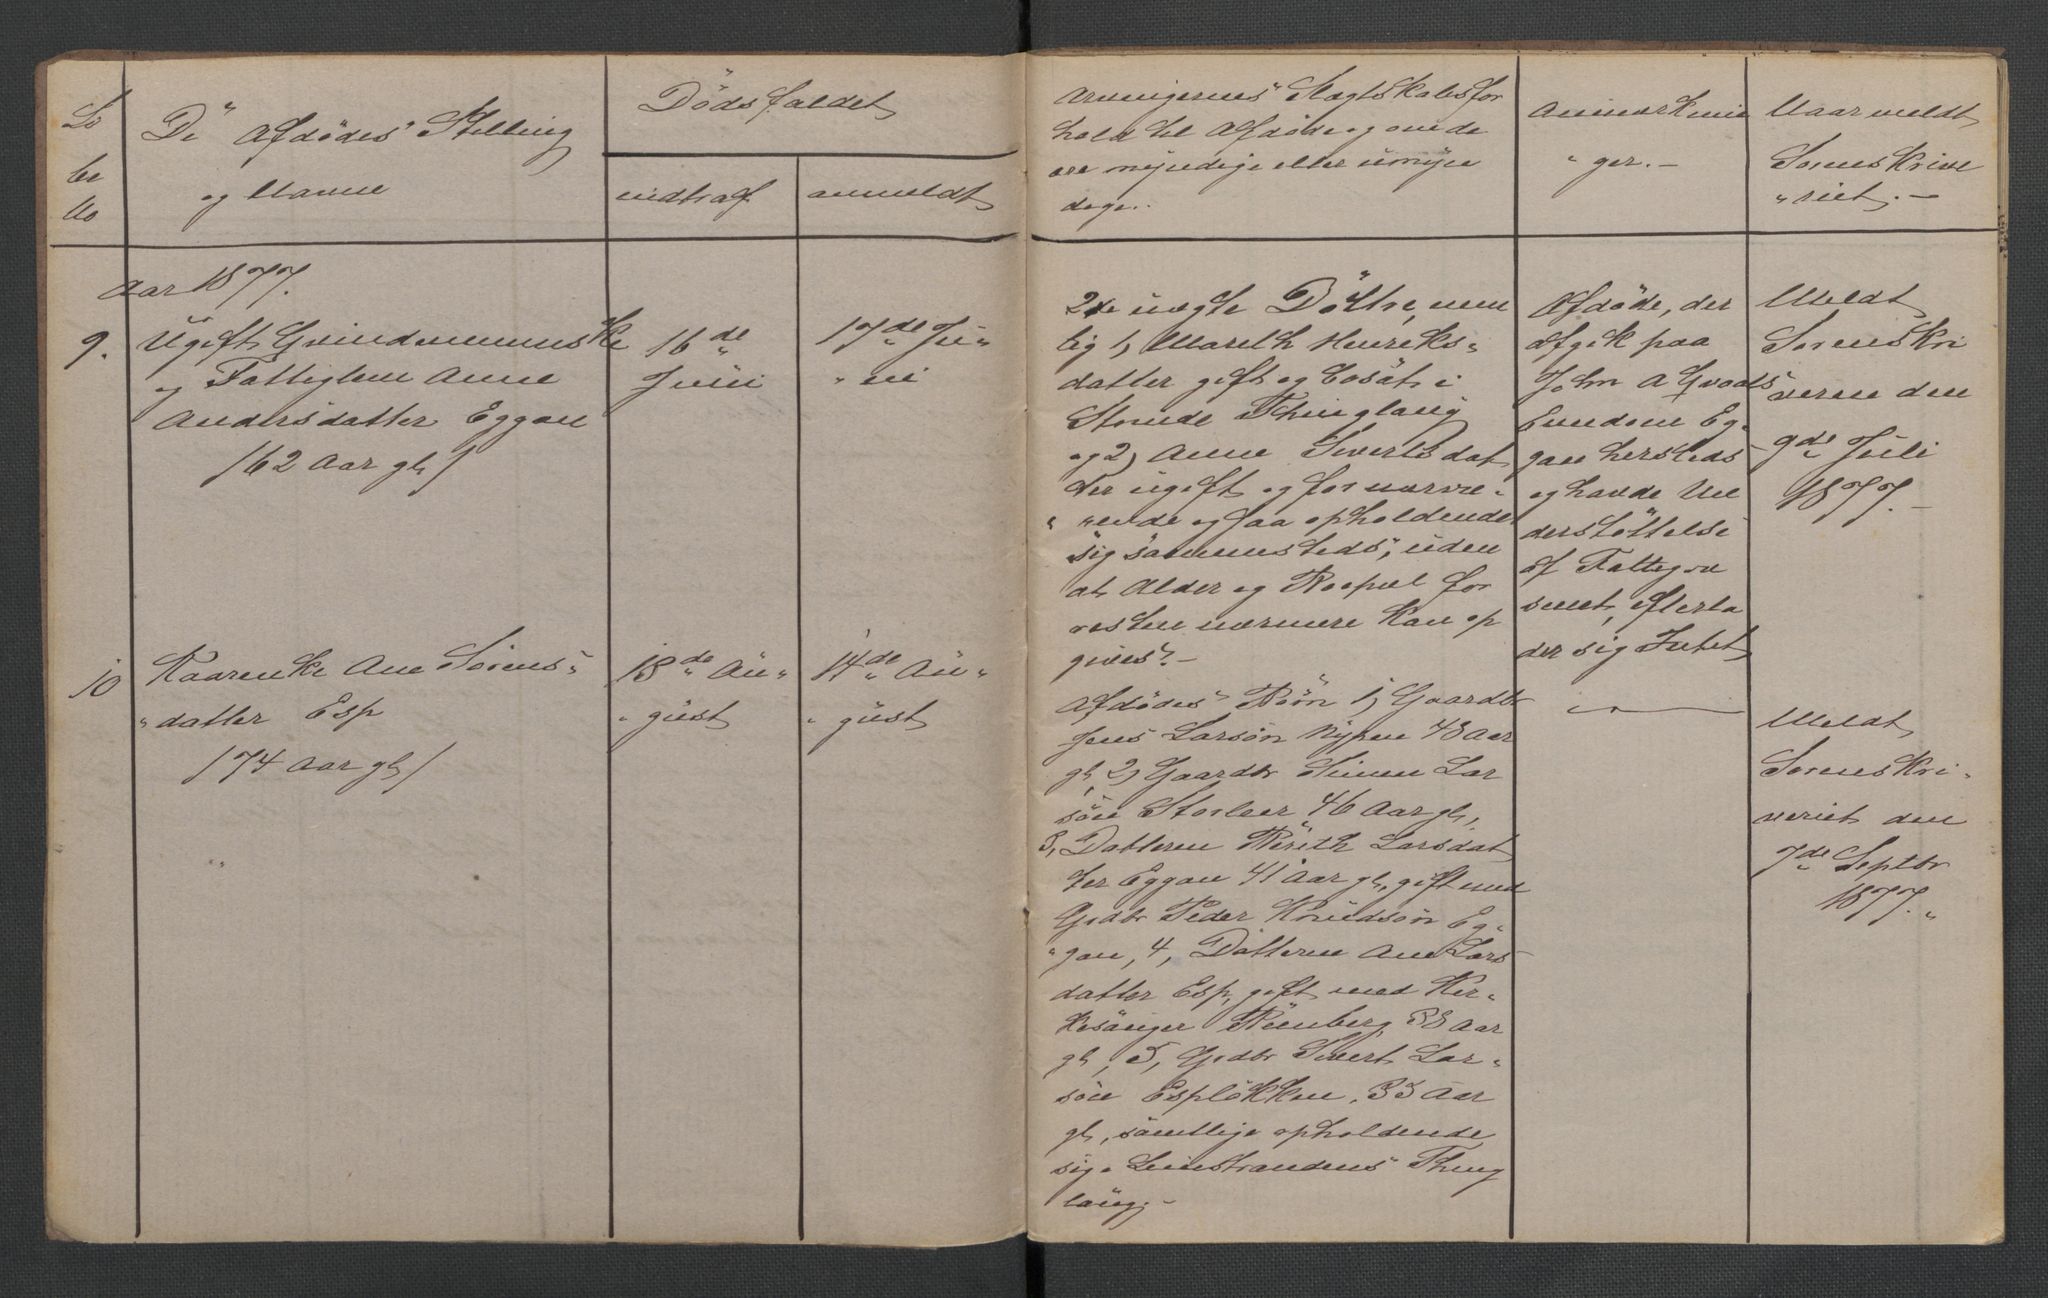 Lö
be
No
De Afdödes Stilling
og Navne
Dödsfaldet
indtraf
anmeldt
Arvingernes Slægtskabsfor
hold til Afdöde og om de
ere myndige eller umyn
dige.
Anmærknin
" ger. -
Naar meldt
Sorenskrive
" riet. -
Aar 1877.
9.
Ugift Qvindemenneske
og Fattiglem Anne
Andersdatter Eggan
/62 Aar gl/
16de
Juni
17de Ju"
" ni
2de uægte Döttre, nem
lig 1, Mareth Henriks"
datter gift og bosat i
Storude Thinglaug
og 2, Anne Sivertsdat
ter ugift og for nærvæ"
" ende ogsaa opholdende
sig sammesteds, uden
at Alder og Bopæl for
resten nærmere kan op
gives. -
Afdöde, der
afgik paa
John A Qvaals
Eiendom Eg"
gan hersteds
og havde Un
derstöttelse
af Fattigvæ
senet, efterla
der sig Intet
Meldt
Sorenskri
veren den
9de Juli
1877. -
10
Kaarenke Ane Sörens"
" datter Esp
/74 Aar gl/
13de Au"
" gust
14de Au"
" gust
Afdödes Börn 1, Gaardbr
Jens Larsön Nypen 48 Aar
gl, 2, Gaardbr Simen Lar
sön Storleer 46 Aar gl,
3, Datteren Berith Larsdat
ter Eggan 41 Aar gl, gift med
Grdbr Peder Knudsön Eg"
" gan, 4, Datteren Ane Lars
datter Esp, gift med Kir"
kesanger Buenberg 38 Aar
gl, 5, Grdbr Sivert Lar"
sön Esplökken, 33 Aar
gl, samtlige opholdende
sig i Leinstrandens Thing
laug. -
Meldt
Sorenskri"
veriet den
7de Septbr
1877. "